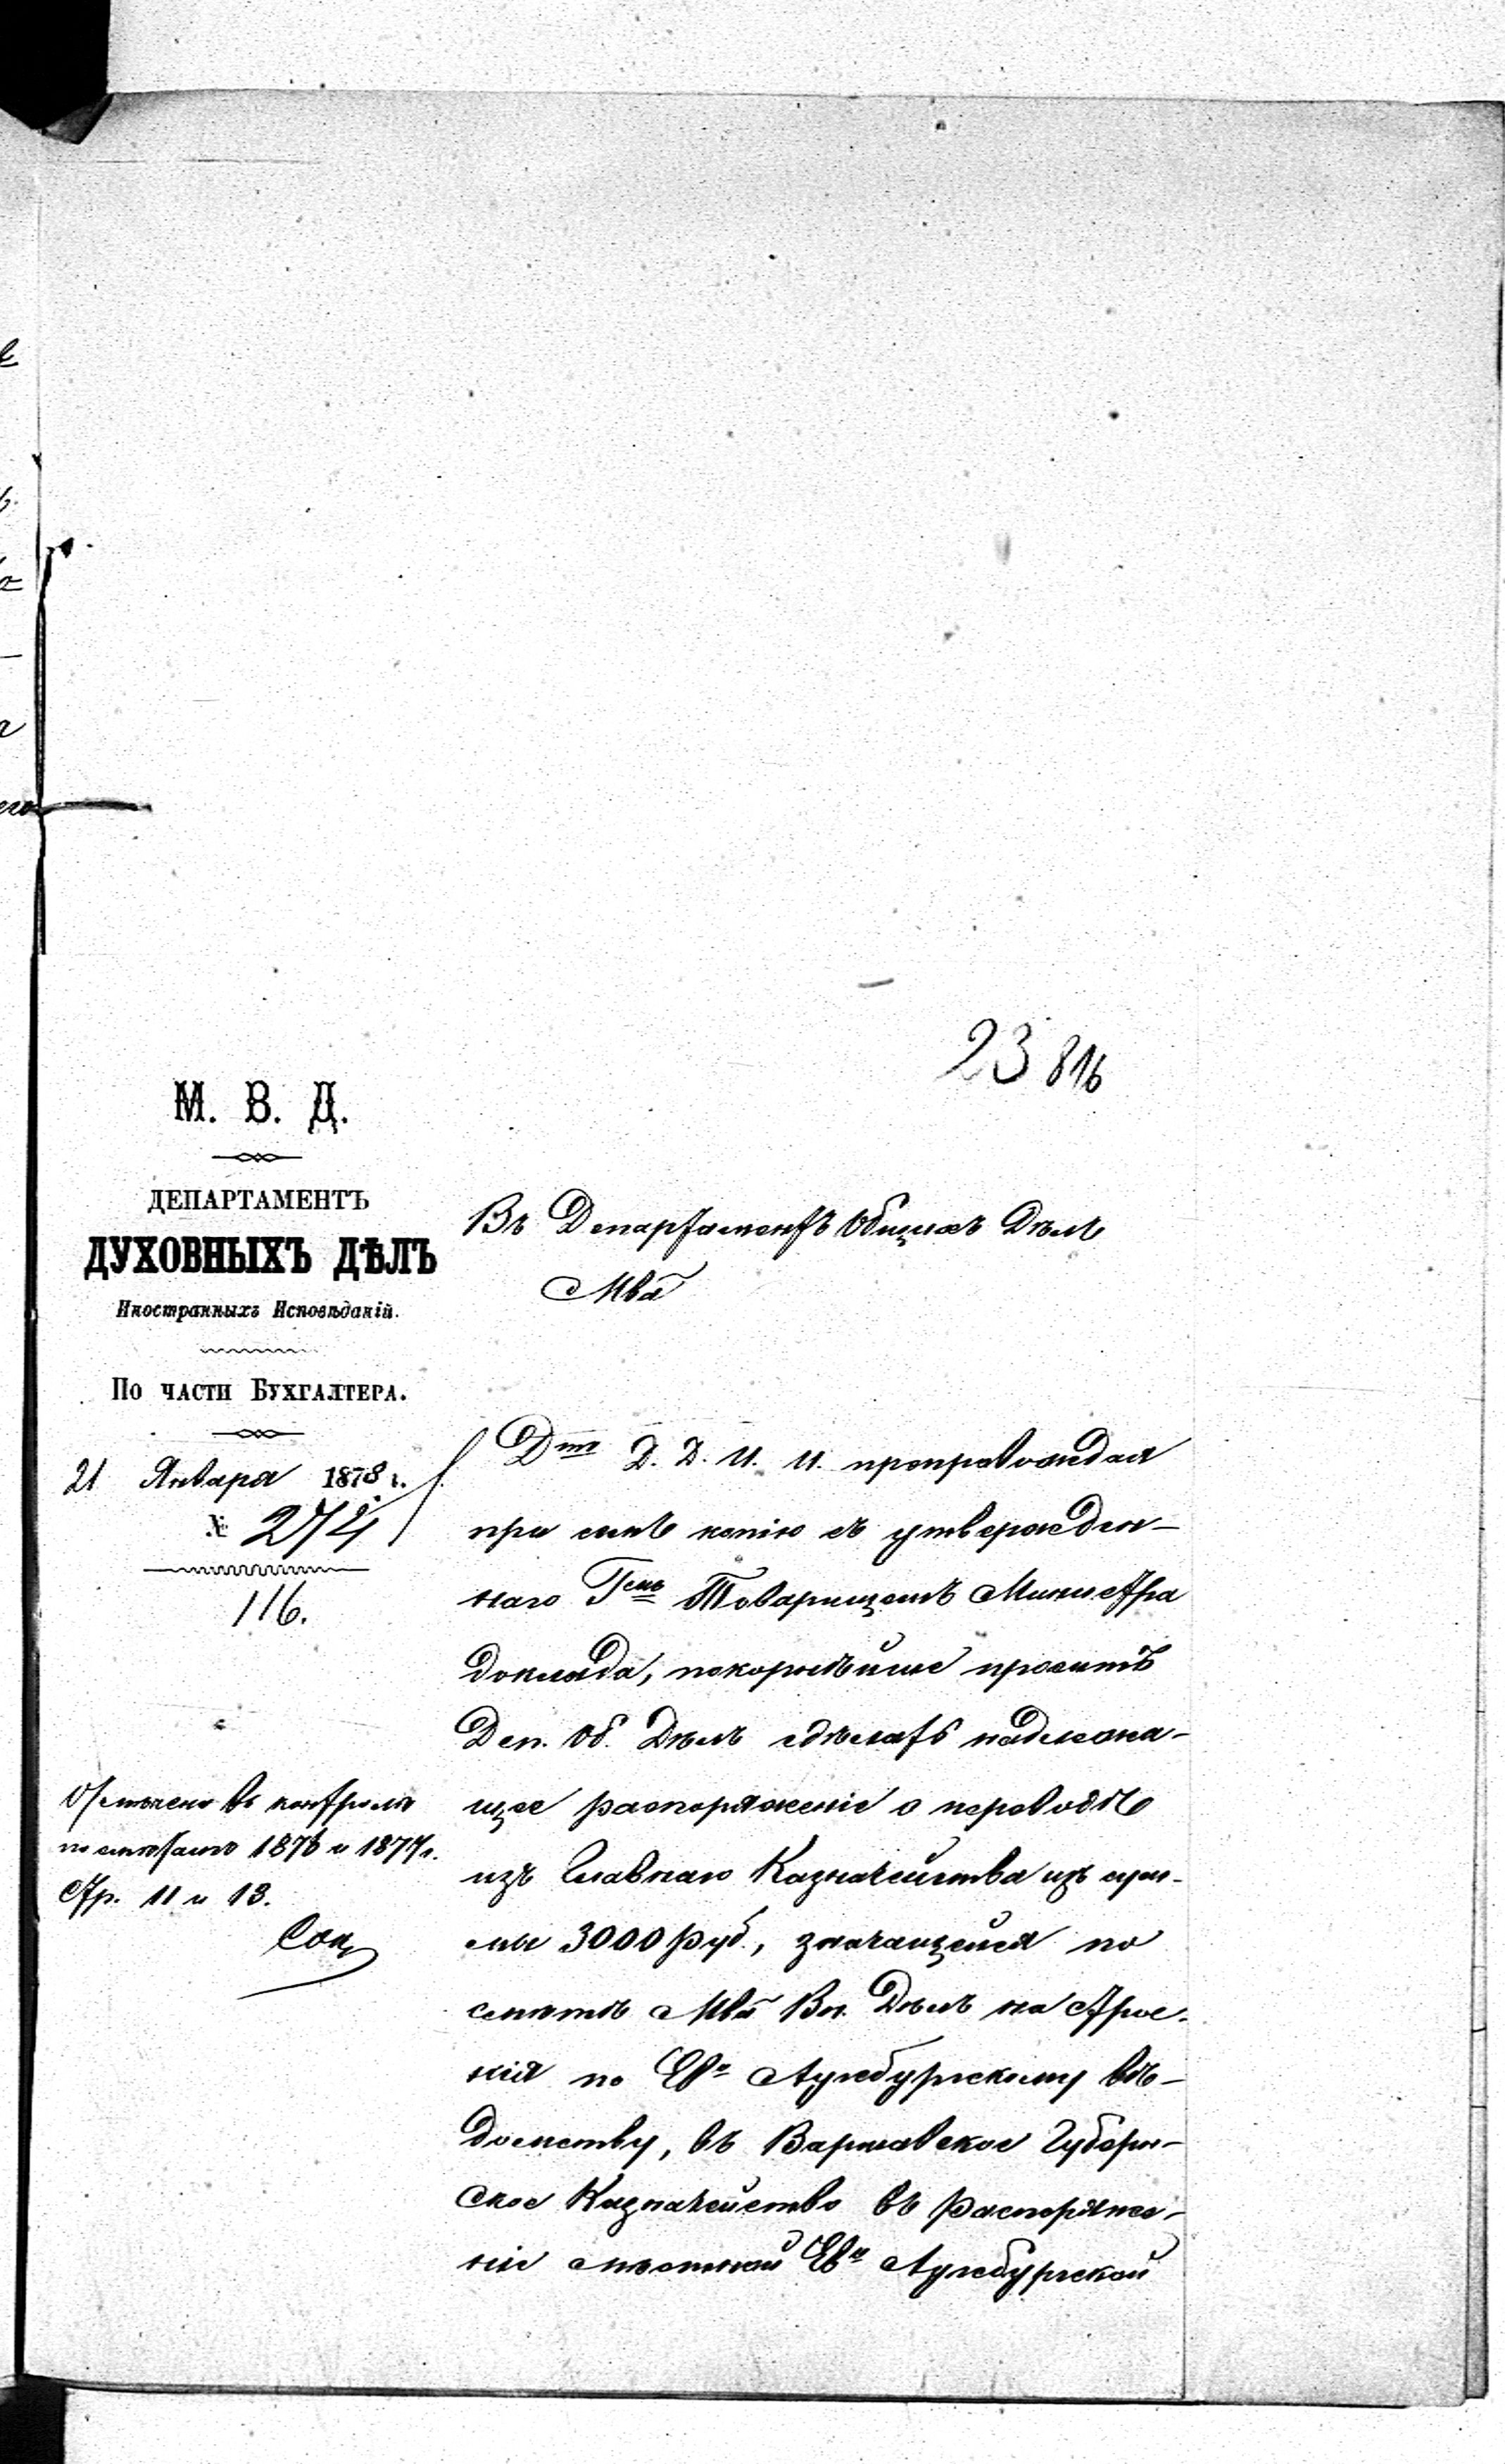 23 816
М. В. Д.
ДЕПАРТАМЕНТЪ
ДУХОВНЫХЪ ДѢЛЪ
Иностранныхъ Исповѣданій.
По части Бухгалтера.
21 Января 1878 г.
№ 274
116.
Отмѣчено въ контролѣ
по смѣтамъ 1878 и 1877 г.
Стр. 11 и 13.
Въ Департаментъ Общихъ Дѣлъ
Мва
Дтъ Д. Д. И. И. препровождая
при семъ копію съ утвержден-
наго Гномъ Товарищемъ Министра
доклада, покорнѣйше проситъ
Деп. Об. Дѣлъ сдѣлать надлежа-
щее распоряженіе о переводѣ
изъ Главнаго Казначейства изъ сум-
мы 3000 руб., значащейся по
смѣтѣ Мва Вн. Дѣлъ на строе-
нія по Еве Аугсбургскому вѣ-
домству, въ Варшавское Губерн-
ское Казначейство въ распоряже-
ніе мѣстной Еве Аугсбургской